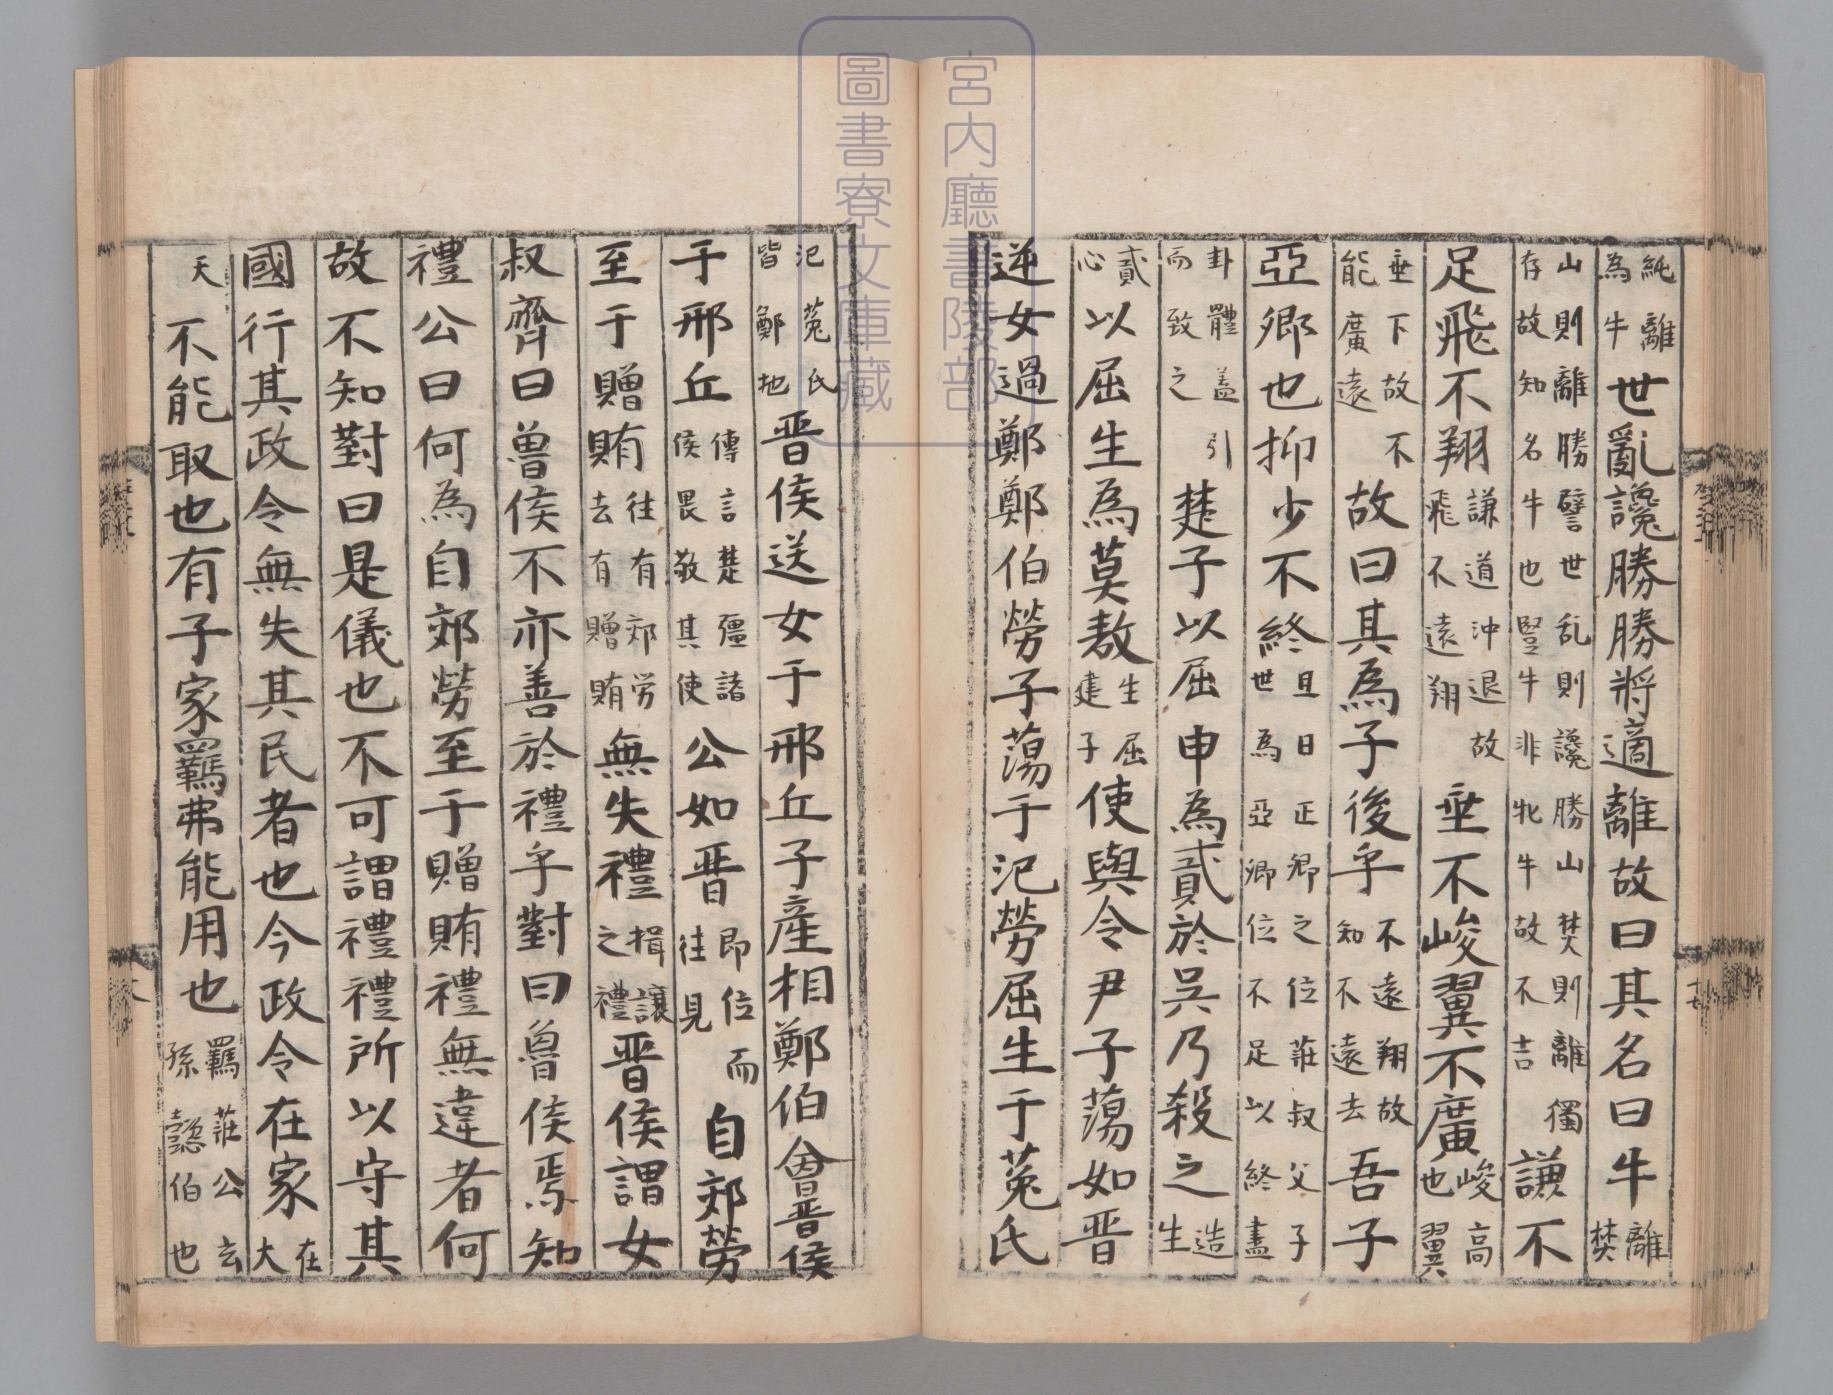 純離為牛世亂讒勝勝將適離故曰其名曰牛離焚
山則離勝譬世乱則讒勝山焚則離獨存故知名牛也豎牛非牝牛故不吉謙不
足飛不翔謙道沖退故飛不遠翔垂不峻翼不廣峻高也翼
垂下故不能廣遠故曰其為子後乎不遠翔故知不遠去吾子
亞卿也抑少不終旦日正卿之位莊叔父子世為亞卿位不足以終盡
卦體蓋引而致之楚子以屈申為貳於吳乃殺之造生
貳心以屈生為莫敖生屈建子使與令尹子蕩如晋
逆女過鄭鄭伯勞子蕩于氾勞屈生于菟氏
氾菟氏皆鄭地晋侯送女于邢丘子産相鄭伯會晋侯
于邢丘傳言楚彊諸侯畏敬其使公如晋即位而往見自郊勞
至于贈賄往有郊労去有贈賄無失禮揖讓之禮晋侯謂女
叔齊曰魯侯不亦善於禮乎對曰魯侯焉知
禮公曰何為自郊勞至于贈賄禮無違者何
故不知對曰是儀也不可謂禮禮所以守其
國行其政令無失其民者也今政令在家在大
天不能取也有子家羈弗能用也羈莊公玄孫懿伯也
宮内廳書陵部
圖書寮文庫藏